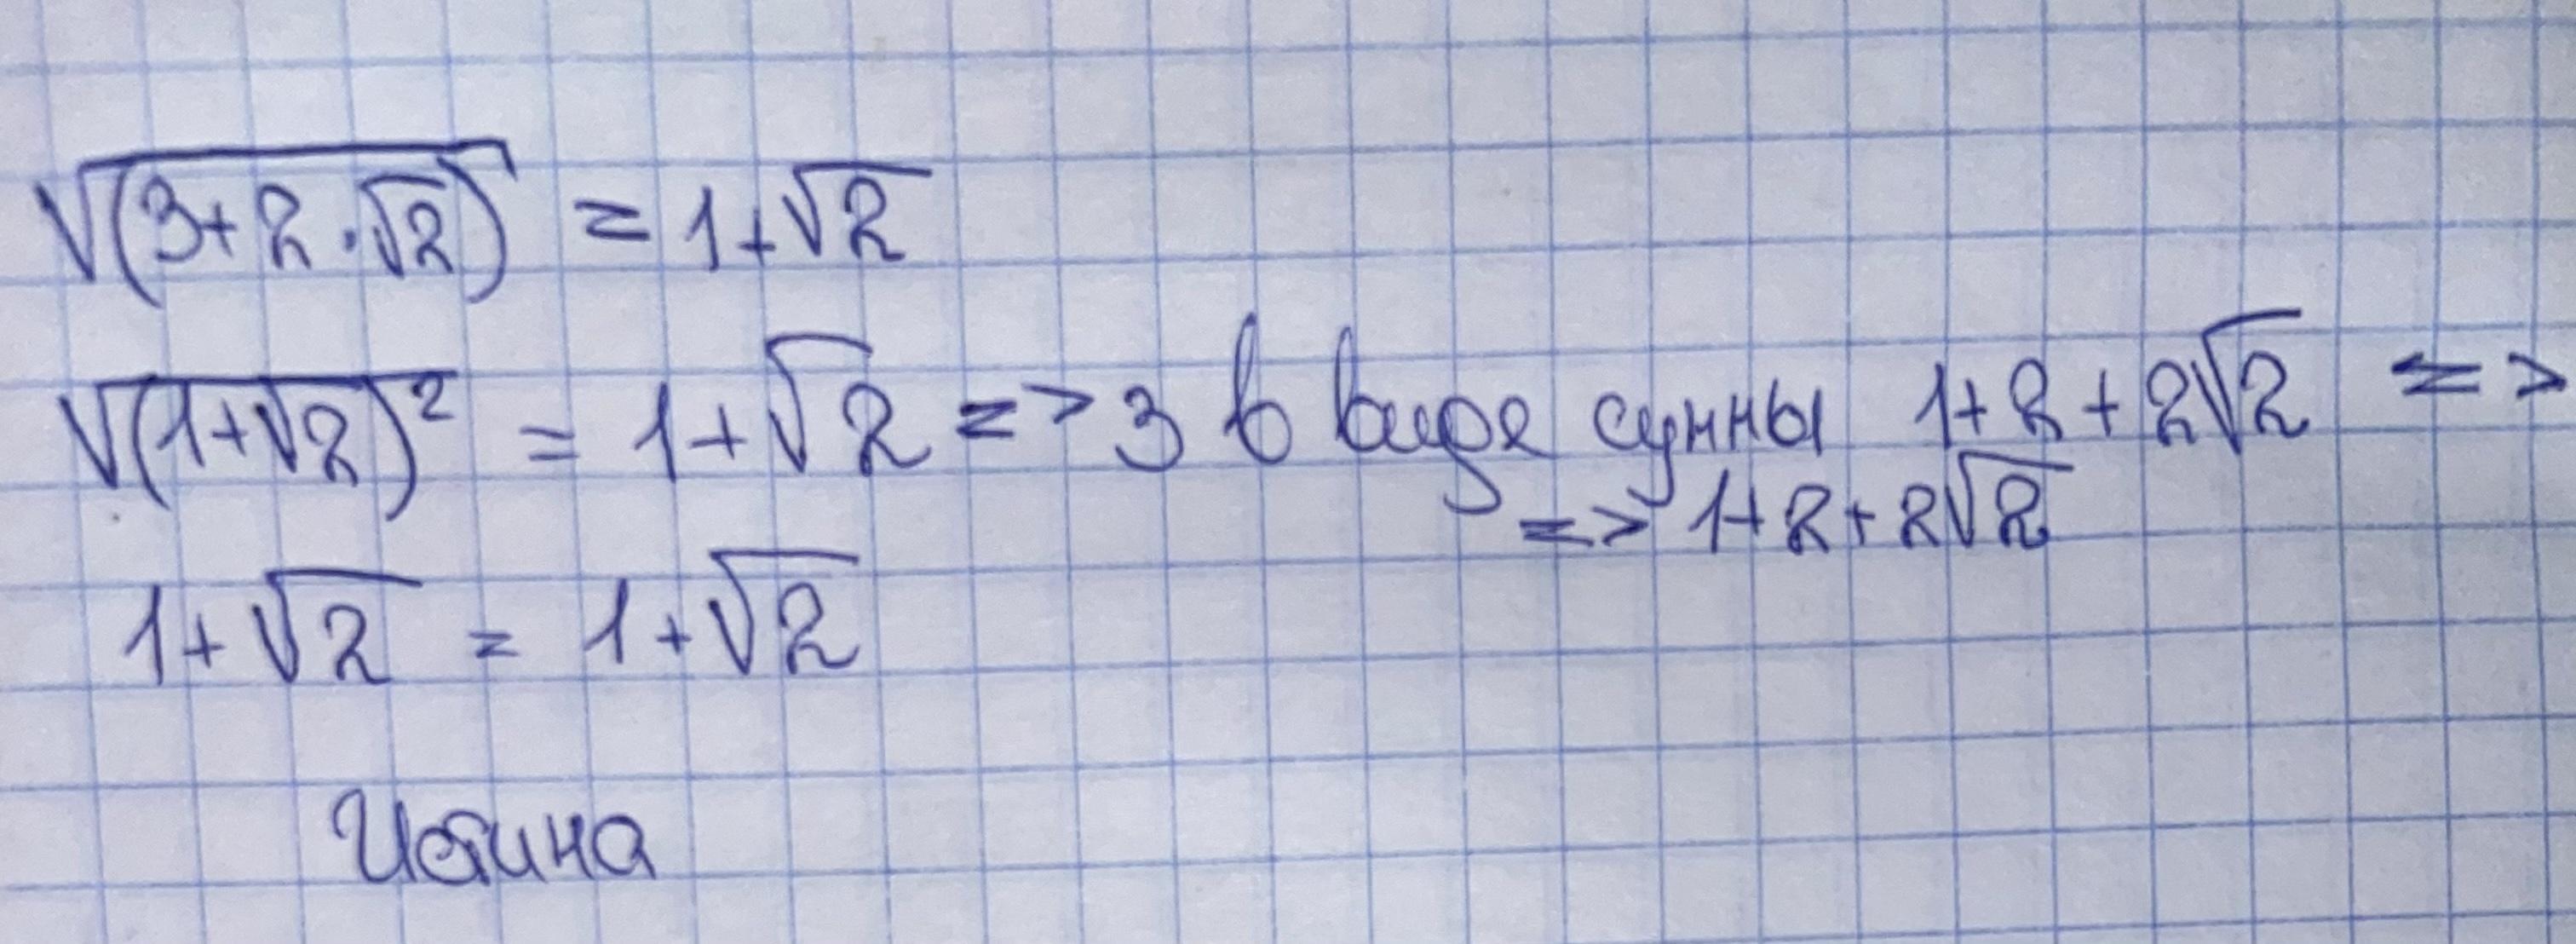 √(3+2·√2) = 1+√2
√(1+√2)² = 1+√2 => 3 в виде суммы 1+2+2√2 =>
=> 1+2+2√2
1+√2 = 1+√2
Истина